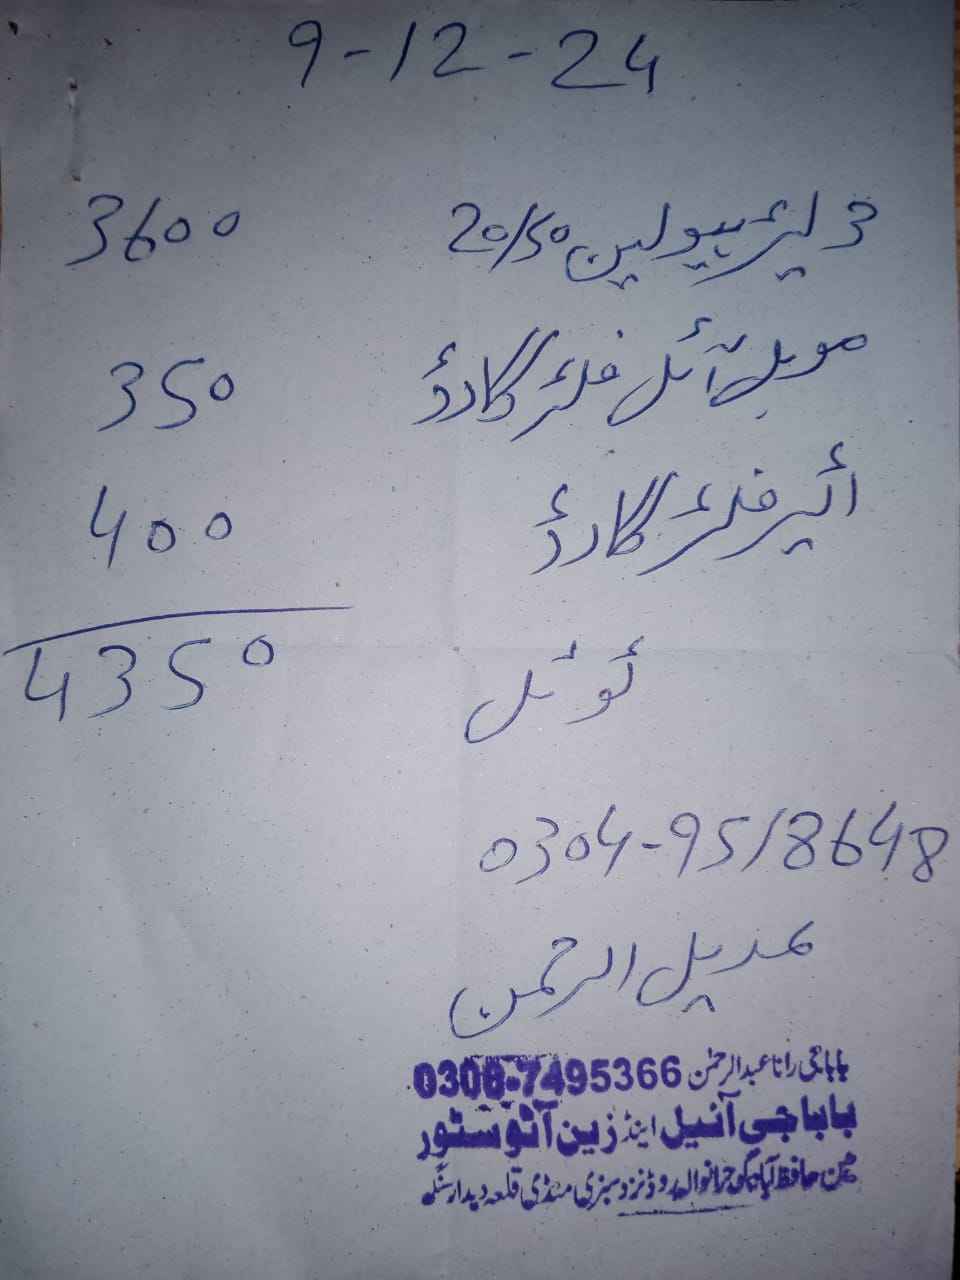 9-12-24
3 لیٹر ہیولین 20/50 3600
موبل آئل فلٹر گارڈ 350
ائیر فلٹر گارڈ 400
ٹوٹل 4350
0304-9518648
عدیل الرحمن
باباجی رانا عبدالرحمٰن 0306-7495366
باباجی آئیل اینڈ زین آٹو سٹور
مین حافظ آباد گوجرانوالہ روڈ نزد سبزی منڈی قلعہ دیدار سنگھ